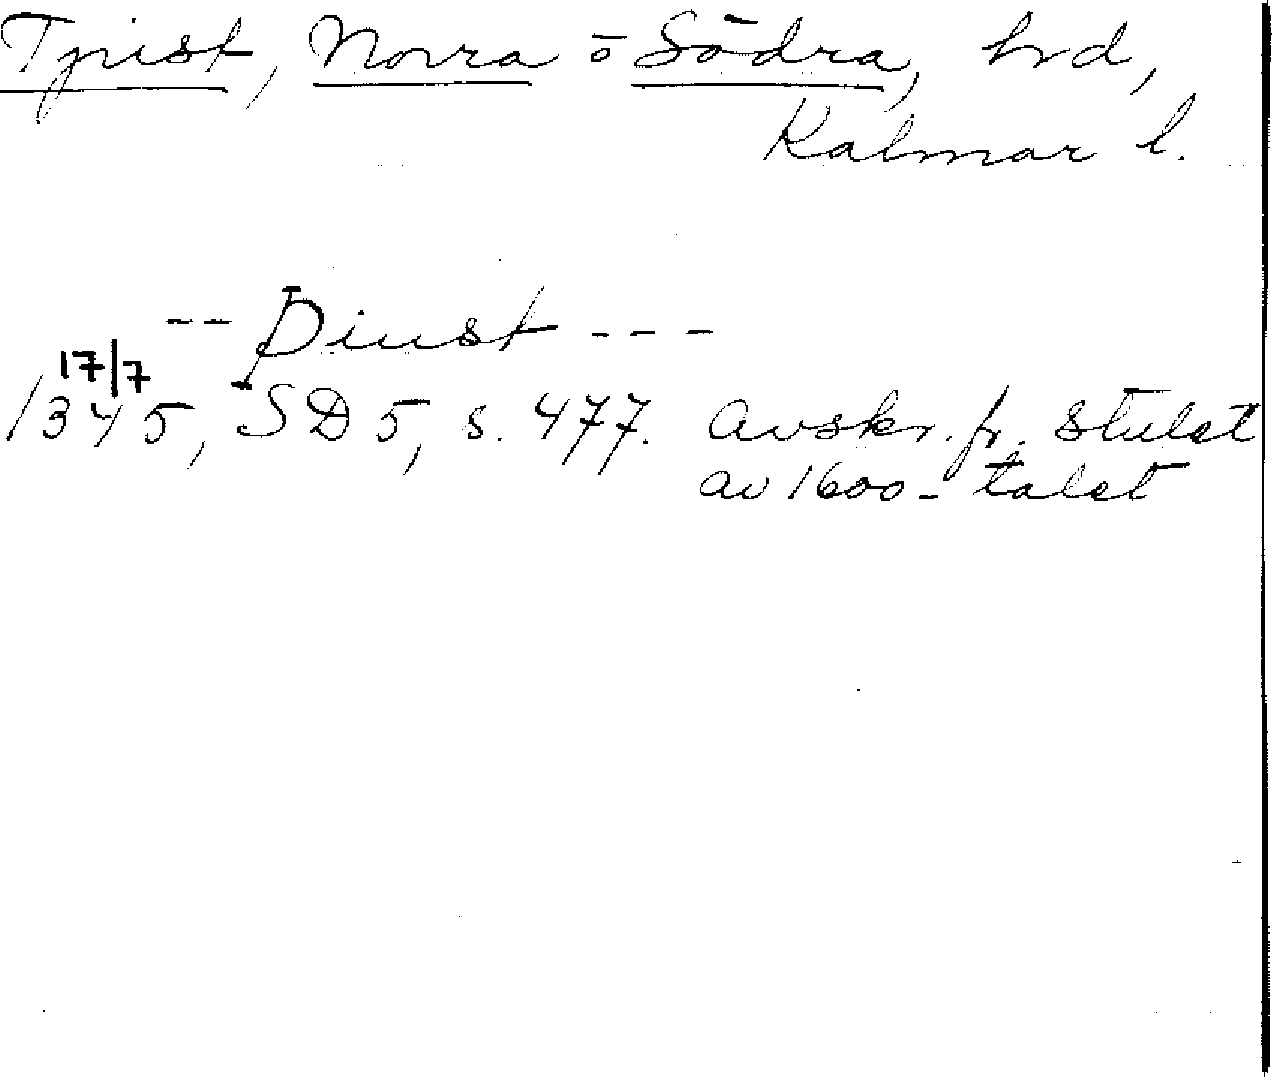 Tjust, Norra ō Södra, hd,
Kalmar l.
-- Þiust ---
17/7
1345, SD 5, s. 477. Avskr. fr. slutet
av 1600-talet